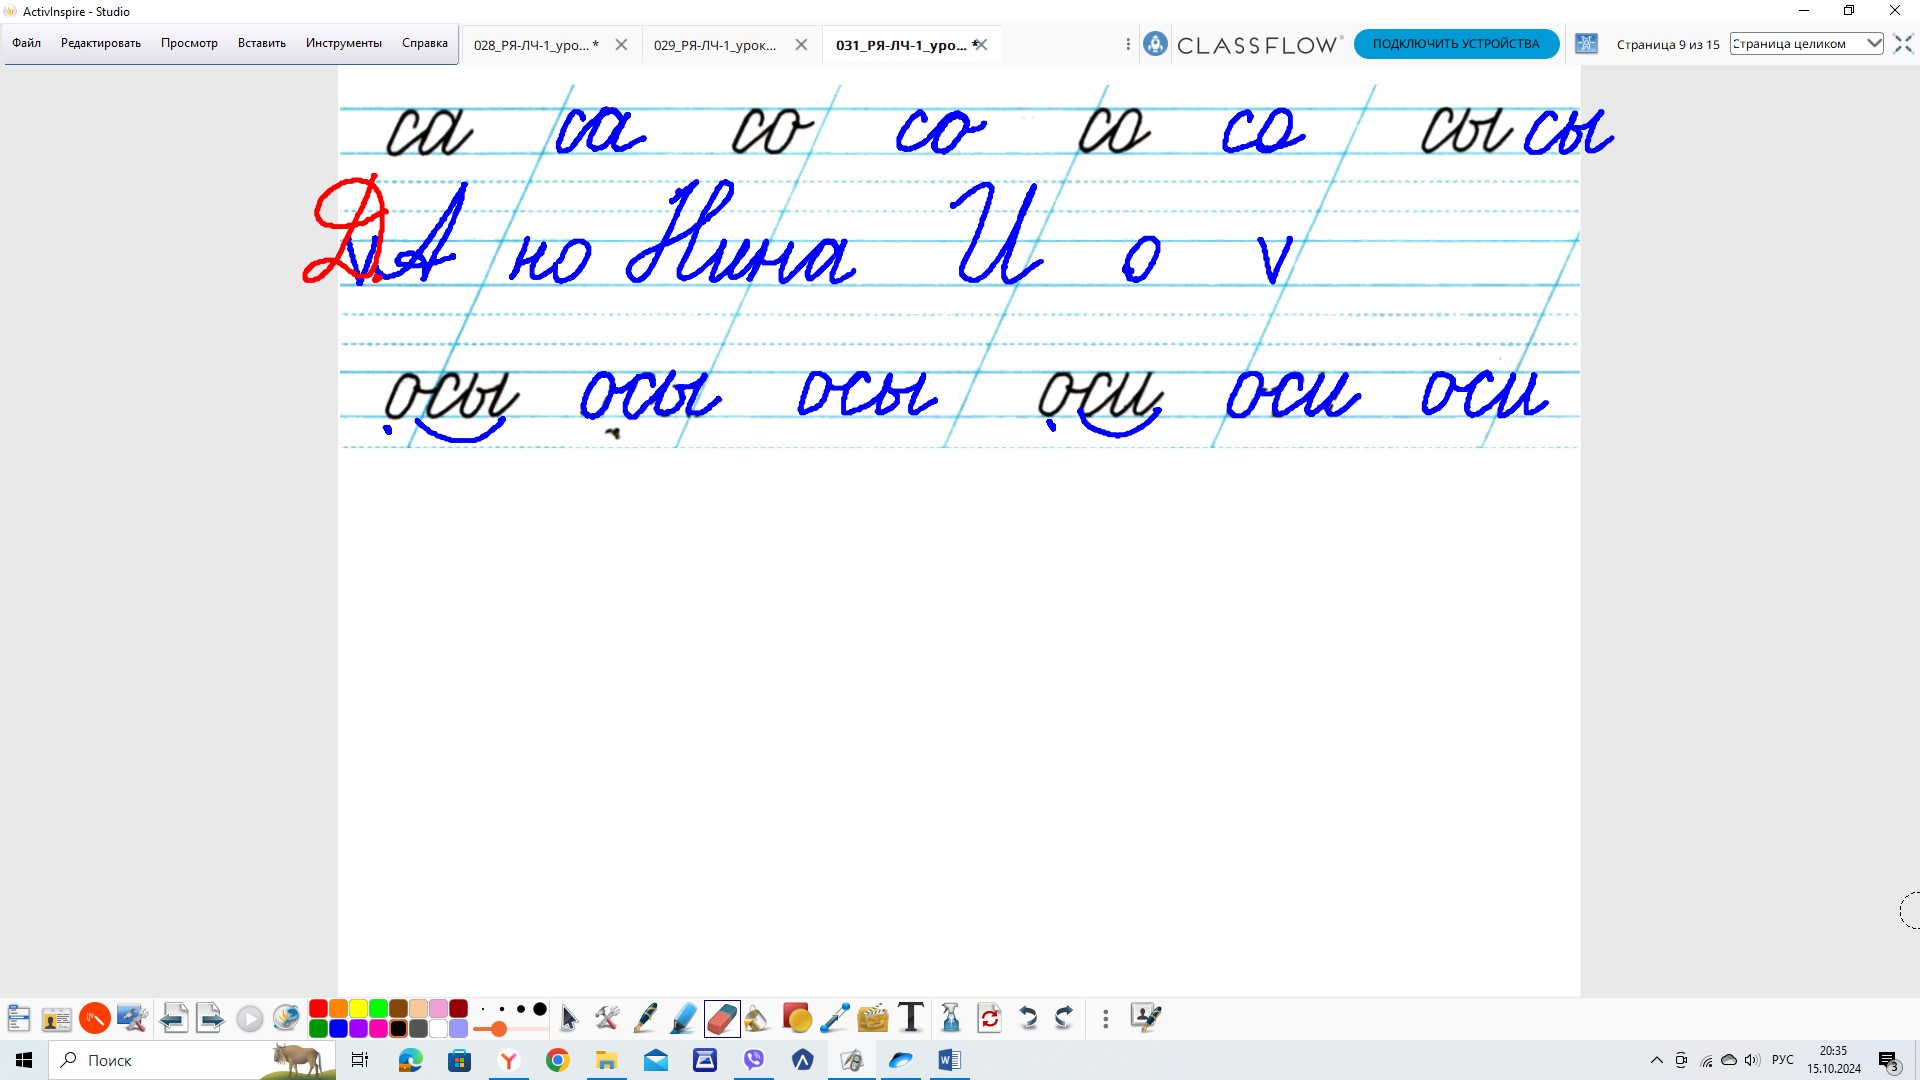 ActivInspire - Studio
Файл Редактировать Просмотр Вставить Инструменты Справка 028_РЯ-ЛЧ-1_уро... * 029_РЯ-ЛЧ-1_урок... 031_РЯ-ЛЧ-1_уро... * CLASSFLOW ПОДКЛЮЧИТЬ УСТРОЙСТВА Страница 9 из 15 Страница целиком
са са со со со со сы сы
Д А но Нина И о v
осы осы осы оси оси оси
Поиск РУС 20:35
15.10.2024 3